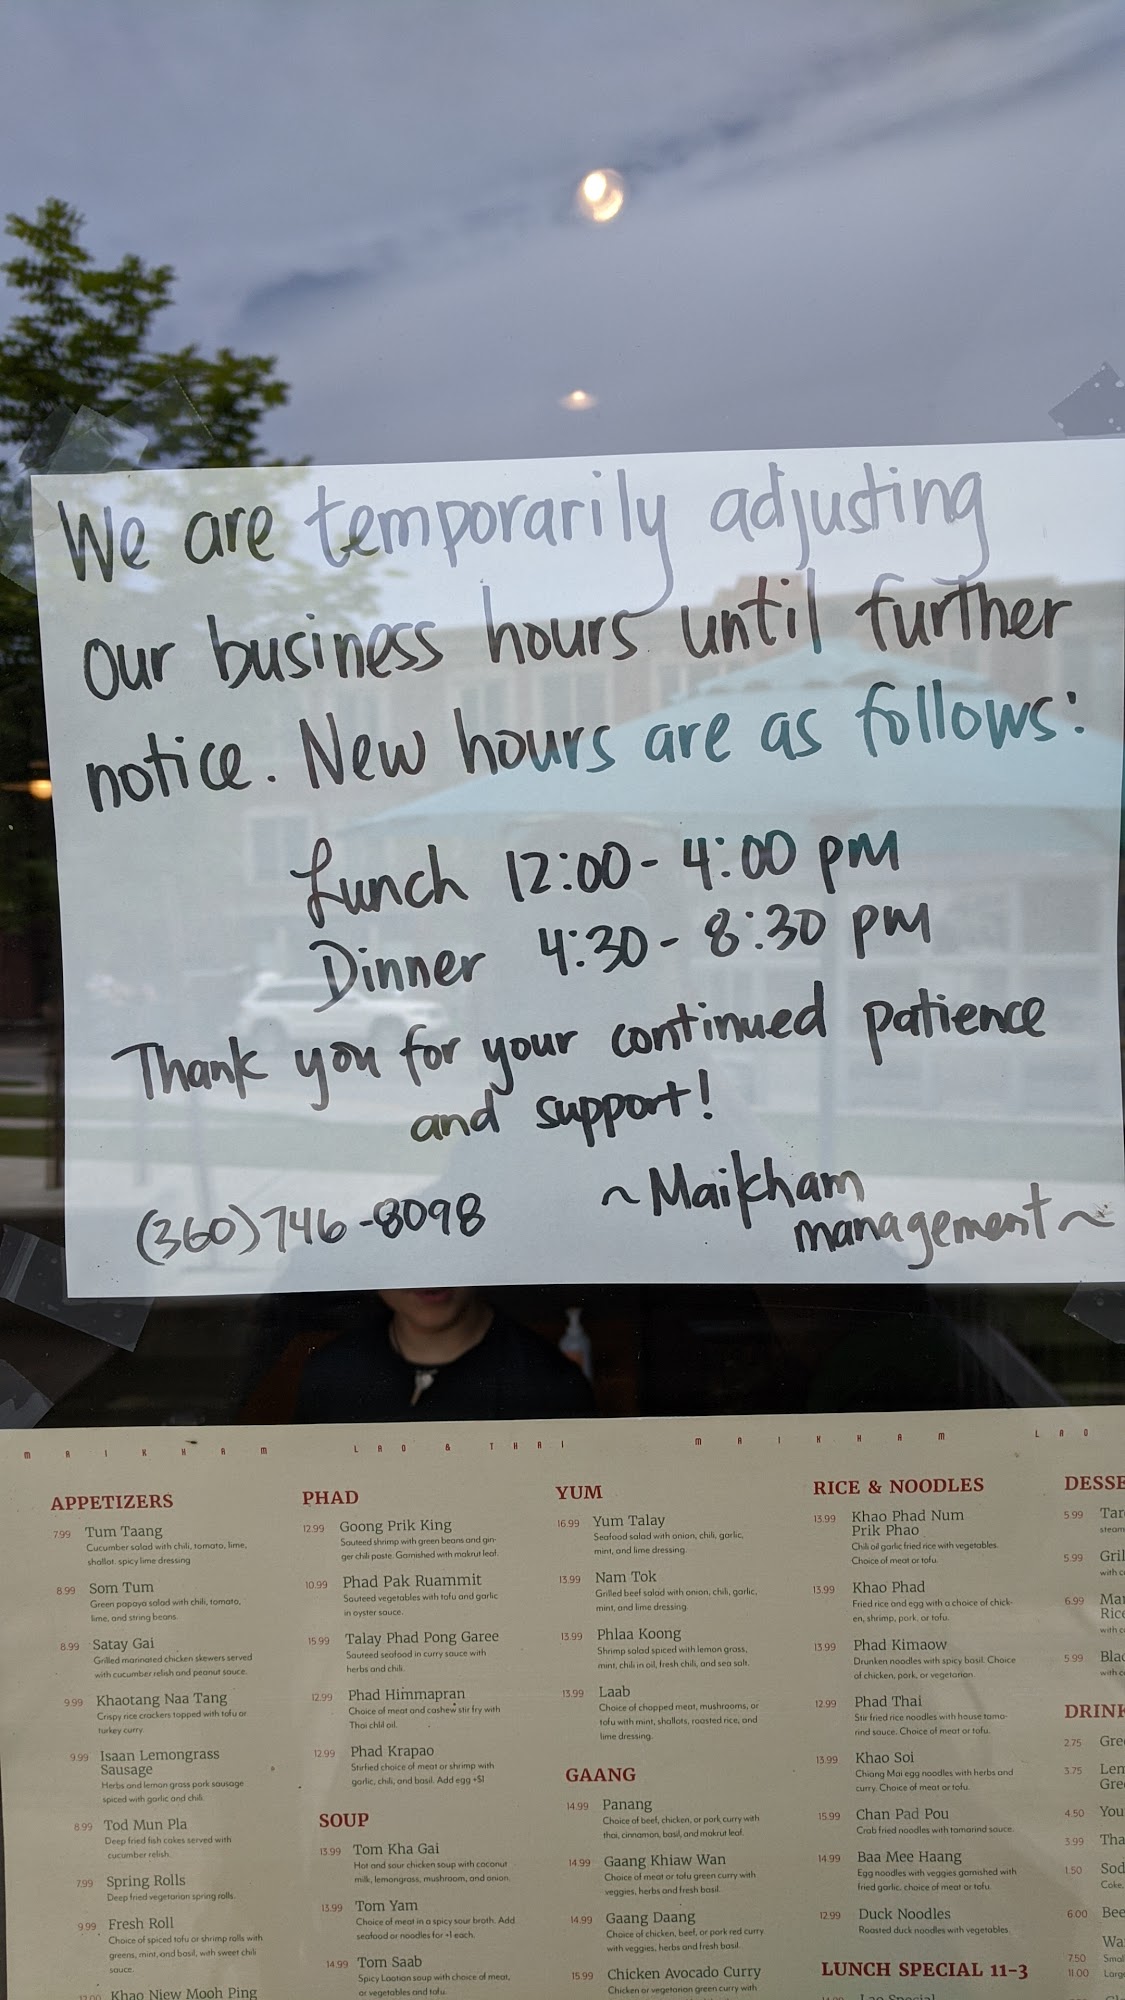 We are temporarily adjusting
our business hours until further
notice. New hours are as follows:
Lunch 12:00 - 4:00 pm
Dinner 4:30 - 8:30 pm
Thank you for your continued patience
and support!
~Maikham
management~
(360)746-8098
MAIKHAM LAO & THAI MAIKHAM LAO
APPETIZERS
7.99 Tum Taang
Cucumber salad with chili, tomato, lime,
shallot. spicy lime dressing
8.99 Som Tum
Green papaya salad with chili, tomato,
lime, and string beans.
8.99 Satay Gai
Grilled marinated chicken skewers served
with cucumber relish and peanut sauce.
9.99 Khaotang Naa Tang
Crispy rice crackers topped with tofu or
turkey curry.
9.99 Isaan Lemongrass
Sausage
Herbs and lemon grass pork sausage
spiced with garlic and chili.
8.99 Tod Mun Pla
Deep fried fish cakes served with
cucumber relish.
7.99 Spring Rolls
Deep fried vegetarian spring rolls.
9.99 Fresh Roll
Choice of spiced tofu or shrimp rolls with
greens, mint, and basil, with sweet chili
sauce.
Khao Niew Mooh Ping
PHAD
12.99 Goong Prik King
Sauteed shrimp with green beans and gin-
ger chili paste. Garnished with makrut leaf.
10.99 Phad Pak Ruammit
Sauteed vegetables with tofu and garlic
in oyster sauce.
15.99 Talay Phad Pong Garee
Sauteed seafood in curry sauce with
herbs and chili.
12.99 Phad Himmapran
Choice of meat and cashew stir fry with
Thai chili oil.
12.99 Phad Krapao
Stirfied choice of meat or shrimp with
garlic, chili, and basil. Add egg +$1
SOUP
13.99 Tom Kha Gai
Hot and sour chicken soup with coconut
milk, lemongrass, mushroom, and onion.
13.99 Tom Yam
Choice of meat in a spicy sour broth. Add
seafood or noodles for +1 each.
14.99 Tom Saab
Spicy Laotian soup with choice of meat,
or vegetables and tofu.
YUM
16.99 Yum Talay
Seafood salad with onion, chili, garlic,
mint, and lime dressing.
13.99 Nam Tok
Grilled beef salad with onion, chili, garlic,
mint, and lime dressing.
13.99 Phlaa Koong
Shrimp salad spiced with lemon grass,
mint, chili in oil, fresh chili, and sea salt.
13.99 Laab
Choice of chopped meat, mushrooms, or
tofu with mint, shallots, roasted rice, and
lime dressing.
GAANG
14.99 Panang
Choice of beef, chicken, or pork curry with
thai, cinnamon, basil, and makrut leaf.
14.99 Gaang Khiaw Wan
Choice of meat or tofu green curry with
veggies, herbs and fresh basil.
14.99 Gaang Daang
Choice of chicken, beef, or pork red curry
with veggies, herbs and fresh basil.
15.99 Chicken Avocado Curry
Chicken or vegetarian green curry with
RICE & NOODLES
13.99 Khao Phad Num
Prik Phao
Chili oil garlic fried rice with vegetables.
Choice of meat or tofu.
13.99 Khao Phad
Fried rice and egg with a choice of chick-
en, shrimp, pork, or tofu.
13.99 Phad Kimaow
Drunken noodles with spicy basil. Choice
of chicken, pork, or vegetarian.
12.99 Phad Thai
Stir fried rice noodles with house tama-
rind sauce. Choice of meat or tofu.
13.99 Khao Soi
Chiang Mai egg noodles with herbs and
curry. Choice of meat or tofu.
15.99 Chan Pad Pou
Crab fried noodles with tamarind sauce.
14.99 Baa Mee Haang
Egg noodles with veggies garnished with
fried garlic, choice of meat or tofu.
12.99 Duck Noodles
Roasted duck noodles with vegetables.
LUNCH SPECIAL 11-3
DESSE
5.99 Tar
steam
5.99 Gril
with c
6.99 Ma
Rice
with c
5.99 Blac
with c
DRINK
2.75 Gre
3.75 Lem
Gre
4.50 You
3.99 Tha
1.50 Sod
Coke,
6.00 Bee
Wa
7.50 Smal
11.00 Larg